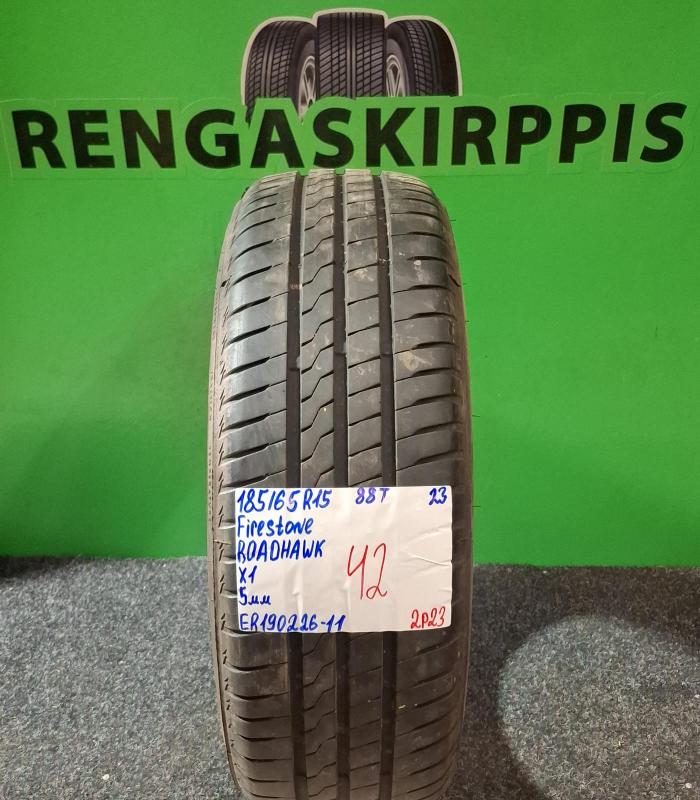 RENGASKIRPPIS
185/65R15 88T 23
Firestone
ROADHAWK
X1
5мм
42
ER190226-11 2P23